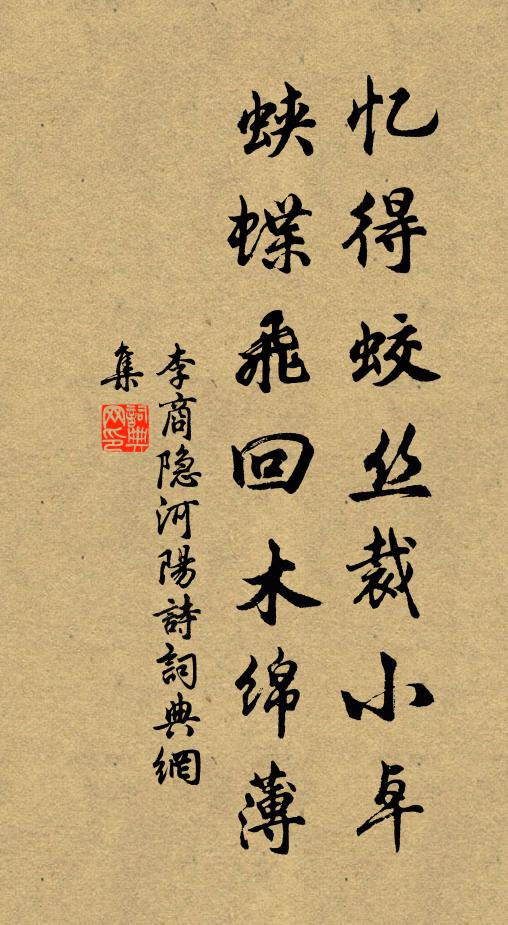 忆得蛟丝裁小卓
蛱蝶飞回木绵薄
李商隐河陽詩詞典網
集
詞典网印